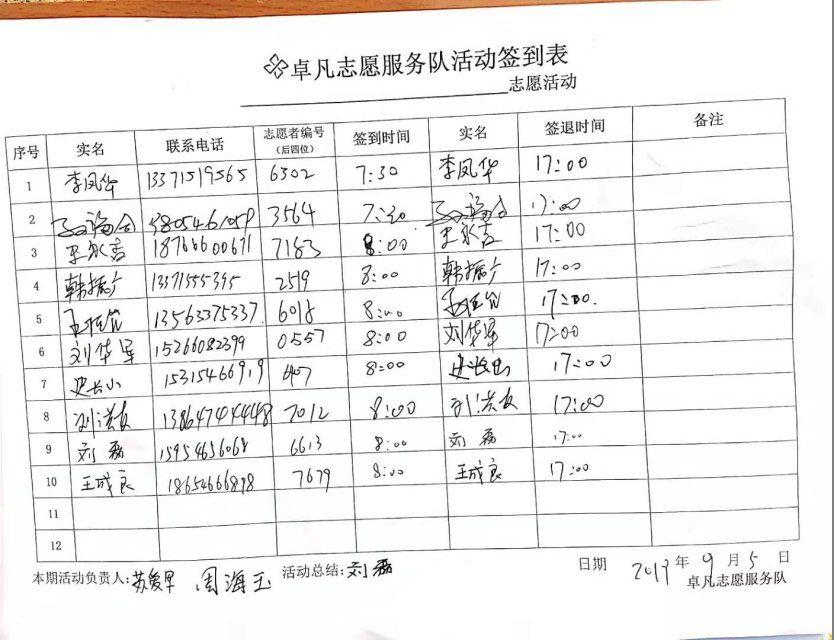 卓凡志愿服务队活动签到表
志愿活动
序号 实名 联系电话 志愿者编号（后四位） 签到时间 实名 签退时间 备注
1 李凤华 13371519565 6302 7:30 李凤华 17:00
2 3564 7:30 17:00
3 王永吉 18766600671 7183 8:00 王永吉 17:00
4 韩振广 13371555395 2519 8:00 韩振广 17:00
5 13563375337 6018 8:00 17:00
6 刘华军 15266082399 0557 8:00 刘华军 17:00
7 史长山 15315466919 407 8:00 史长山 17:00
8 刘洪友 13864744448 7012 8:00 刘洪友 17:00
9 刘磊 15954656068 6613 8:00 刘磊 17:00
10 王成良 18654666898 7679 8:00 王成良 17:00
11
12
本期活动负责人:苏爱早 周海玉 活动总结:刘磊 日期 2019年9月5日
卓凡志愿服务队